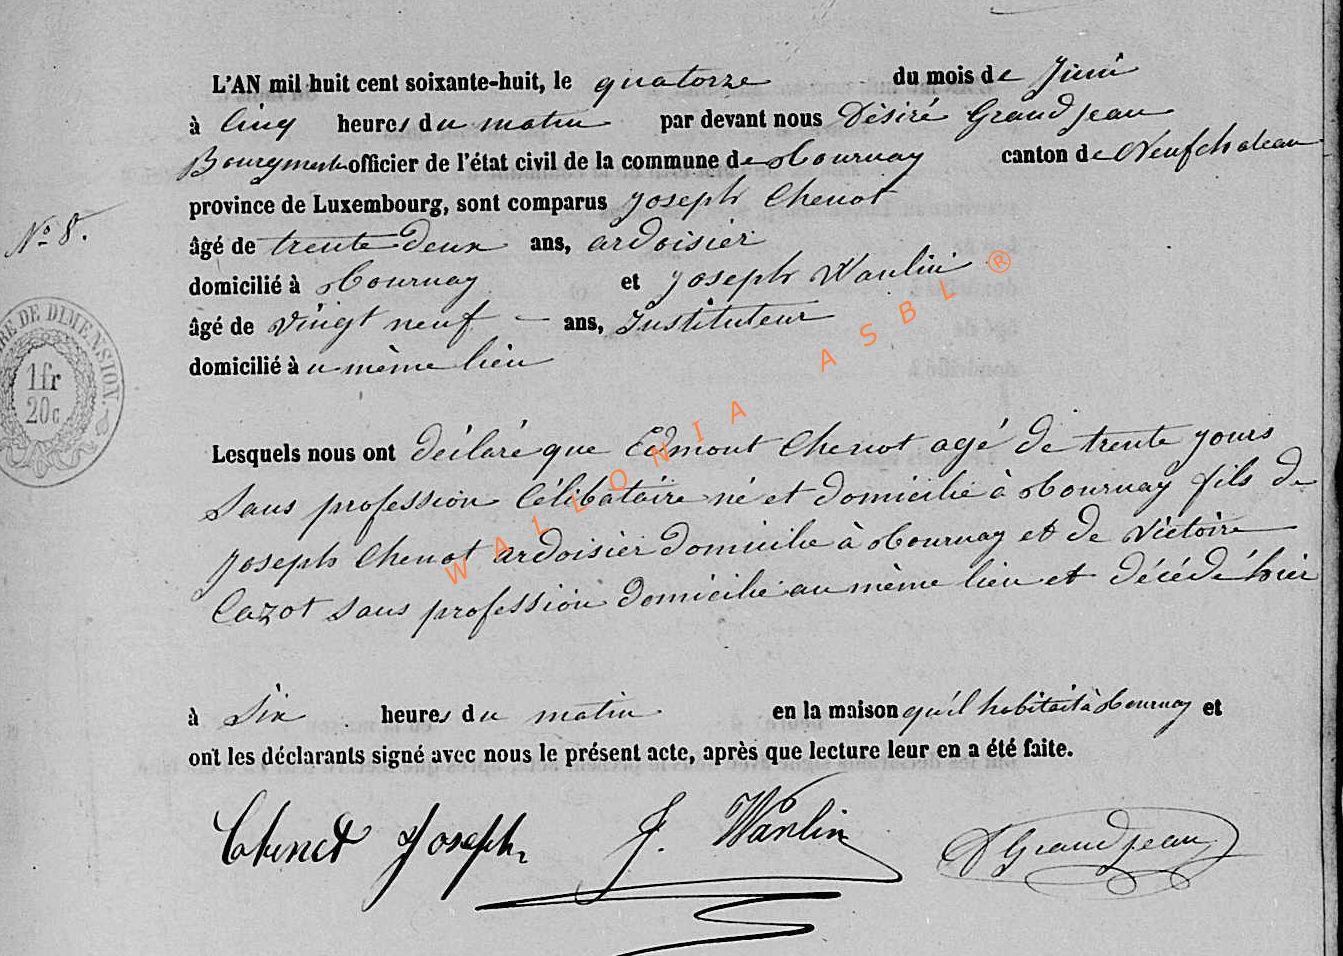 L'AN mil huit cent soixante-huit, le quatorze du mois de Juin
à Cinq heures du matin par devant nous Désiré Grandjean
Bourgmestre officier de l'état civil de la commune de Tournay canton de Neufchateau
province de Luxembourg, sont comparus Joseph Chenot
N° 8.
âgé de trente deux ans, ardoisier
domicilié à Tournay et Joseph Wanlin
âgé de vingt neuf — ans, Instituteur
domicilié à u même lieu
RE DE DIMENSION.
1fr
20c
Lesquels nous ont déclaré que Edmont Chenot agé de trente jours
Sans profession Célibataire né et domicilié à Tournay fils de
Joseph Chenot ardoisier domicilié à Tournay et de Victoire
Cazot Sans profession domicilié au même lieu et décédé hier
à Six heures du matin en la maison qu'il habitait à Tournay et
ont les déclarants signé avec nous le présent acte, après que lecture leur en a été faite.
Chenot Joseph J. Wanlin D Grandjean
WALLONIA ASBL ®